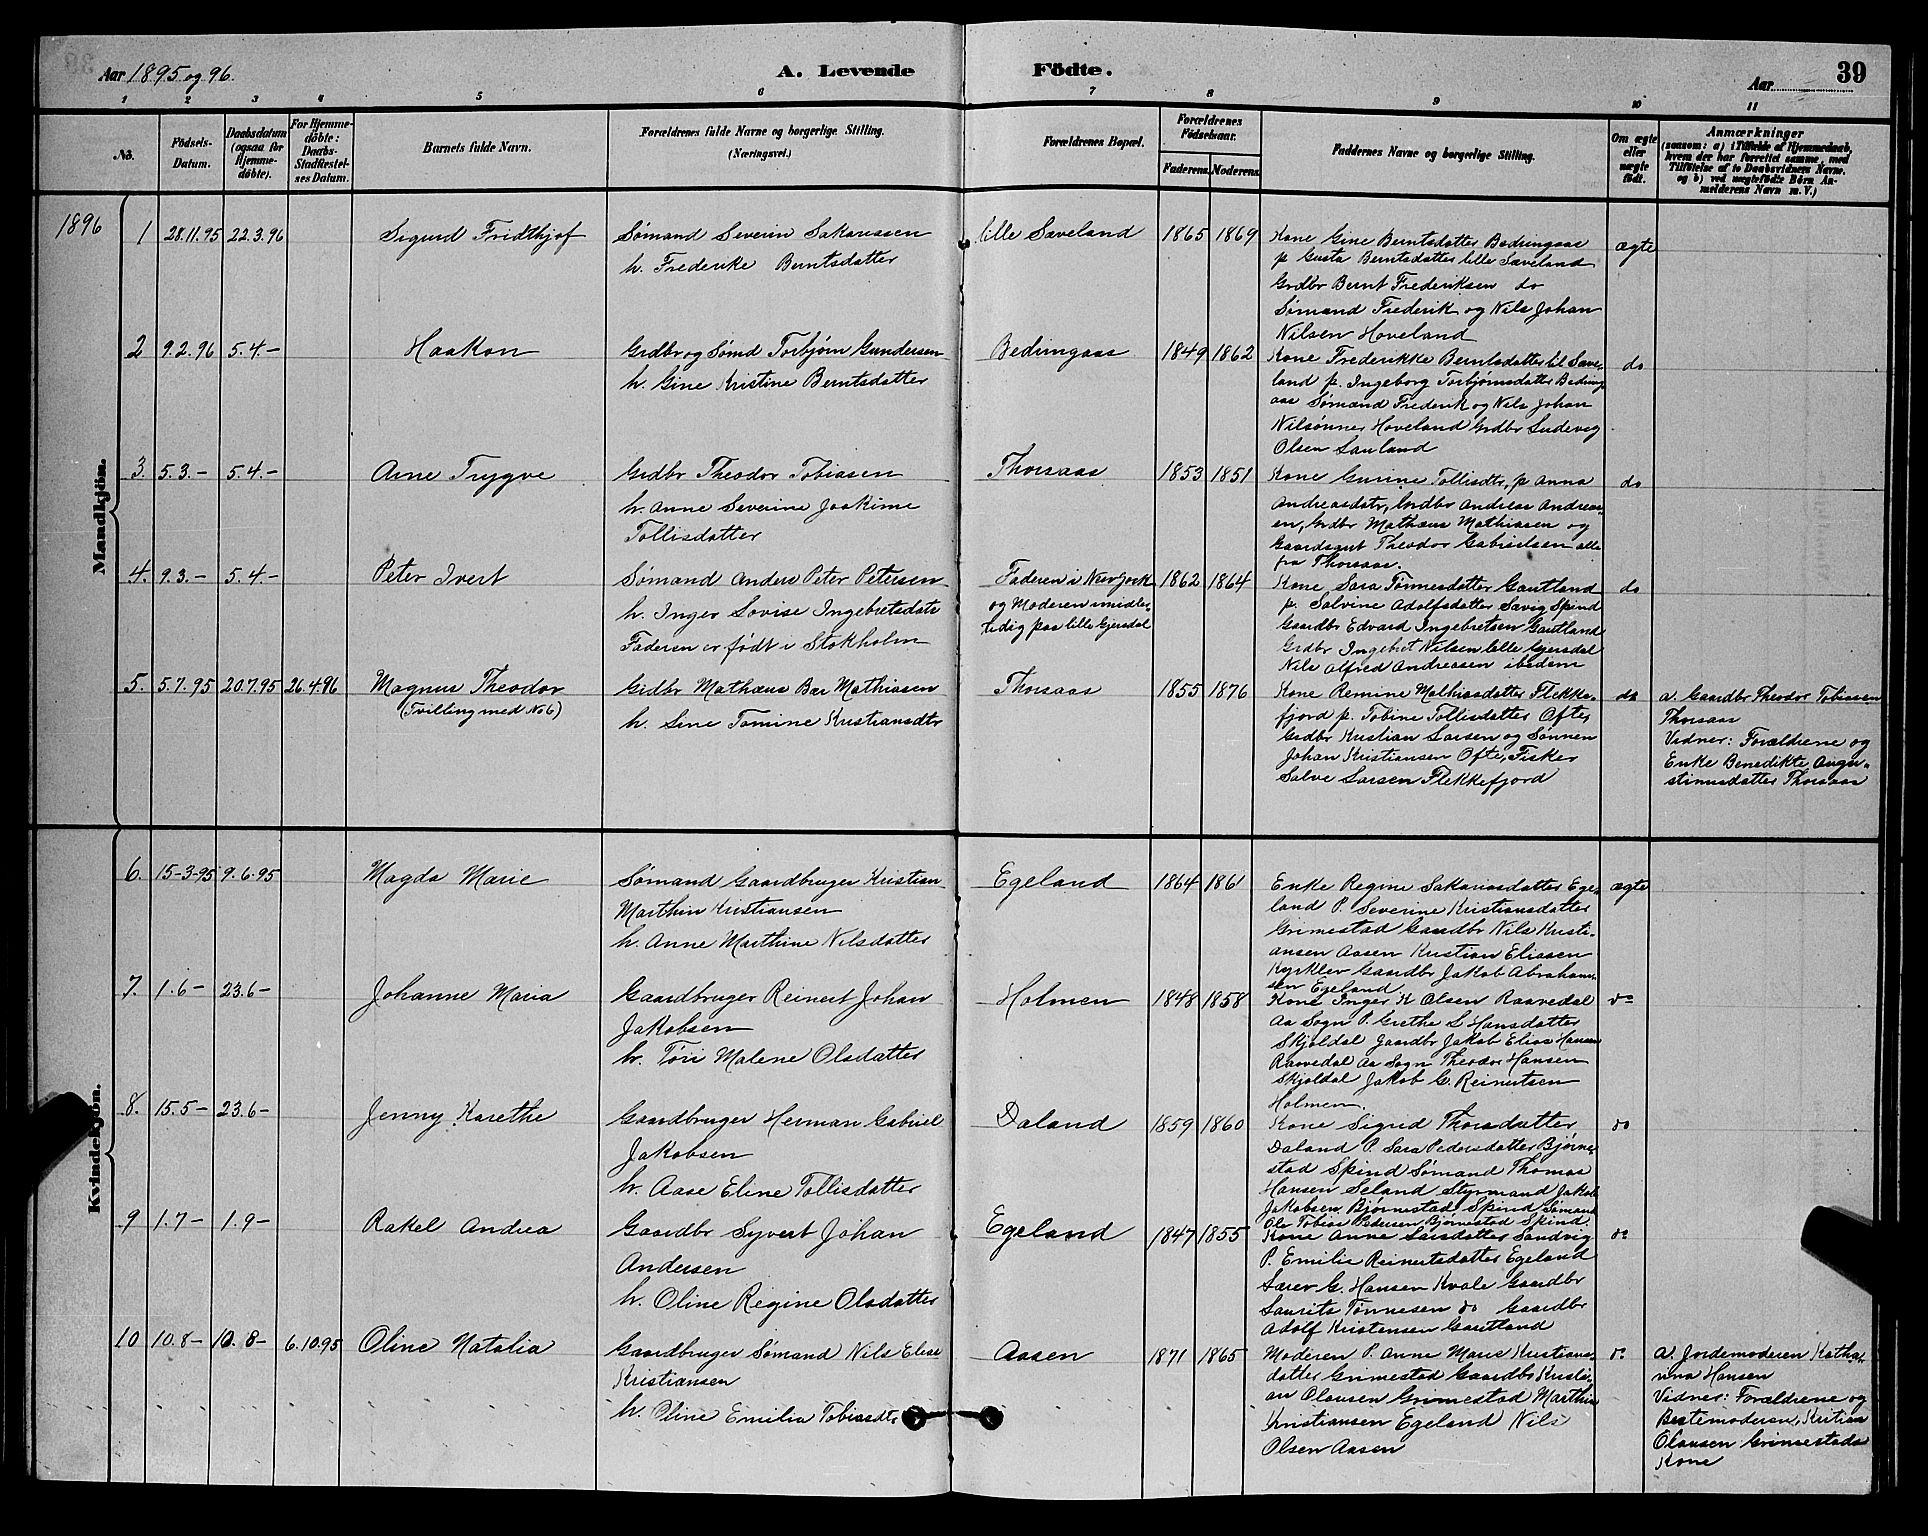 Aar 1895 og 96.
A. Levende Födte.
Aar
39
1 2 3 4 5 6 7 8 9 10 11
No.
Födsels-Datum.
Daabsdatum (ogsaa for Hjemme-döbte).
For Hjemme-döbte: Daabs-Stadfestel-ses Datum.
Barnets fulde Navn.
Forældrenes fulde Navne og borgerlige Stilling. (Næringsvei.)
Forældrenes Bopæl.
Forældrenes Födselsaar.
Faderens. Moderens.
Faddernes Navne og borgerlige Stilling.
Om ægte eller uægte födt.
Anmærkninger
(saasom: a) i Tilfælde af Hjemmedaab, hvem der har forrettet samme, med Tilföielse af to Daabsvidners Navne, og b) ved uægtefödte Börn An-melderens Navn m. V.)
1896
Mandkjön.
1 28.11.95 22.3.96 Sigurd Fridthjof
Sømand Severin Sakariassen
h. Frederike Berntsdatter
lille Sæveland 1865 1869
Kone Gine Berntsdatter Bedringaas
p Gusta Berntsdatter lille Sæveland
Grdbr Bernt Frederiksen do
Sømand Frederik og Nils Johan
Nilsen Hoveland
ægte
2 9.2.96 5.4- Haakon
Grdbr og Sømd Torbjørn Gundersen
h. Gine Kristine Berntsdatter
Bedringaas 1849 1862
Kone Frederikke Berntsdatter lil Sæve-
land p. Ingeborg Torbjørnsdatter Bedring
aas Sømand Frederik og Nils Johan
Nilsønner Hoveland Grdbr Ludevig
Olsen Sauland
do
3. 5.3.- 5.4- Arne Trygve
Grdbr Theodor Tobiassen
h. Anne Severine Joakime
Tollisdatter
Thorsaas 1853 1851
Kone Gurine Tollisdtr, p Anna
Andreasdatr, Grdbr Andreas Andreas-
en, Grdbr Mathæus Mathiassen og
Gaardsgut Theodor Gabrielsen alle
fra Thorsaas.
do
4. 9.3.- 5.4- Peter Ivert
Sømand Anders Peter Petersen
h. Inger Lovise Ingebretsdatr
Faderen er født i Stokholm
Faderen i Newyork
og Moderen imidler-
tidig paa lille Gjersdal
1862 1864
Kone Sara Tønnesdatter Gautland
p. Salvine Adolfsdatter Sævig Spind
Gaardbr Edvard Ingebretsen Gautland
Grdbr Ingebret Nilsen lille Gjersdal
Nils Alfred Andreassen ibidem
do
5. 5.7.95 20.7.95 26.4.96 Magnus Theodor
(Tvilling med No 6)
Grdbr Mathæus Mathiassen
h. Sine Tomine Kristiansdtr
Thorsaas 1855 1876
Kone Remine Mathiasdatter Flekke-
fjord p. Tobine Tollisdatter Ofte
Grdbr Kristian Larsen og Sønnen
Johan Kristiansen Ofte, Fisker
Salve Larsen Flekkefjord
do
a. Gaardbr Theodor Tobiassen
Thorsaas
Vidner: Forældrene og
Enke Benedikte Augu-
stinusdatter Thorsaas
Kvindekjön.
6. 15-3-95 9.6.95 Magda Marie
Sømand Gaardbruger Kristian
Marthin Kristiansen
h. Anne Marthine Nilsdatter
Egeland 1864 1861
Enke Regine Sakariasdatter Ege-
land P. Severine Kristiansdatter
Grimestad Gaardbr Nils Kristi-
ansen Aasen Kristian Eliassen
Kyrklev Gaardbr Jakob Abraham-
sen Egeland
ægte
7. 1.6- 23.6- Johanne Maria
Gaardbruger Reinert Johan
Jakobsen
h. Tøri Malene Olsdatter
Holmen 1848 1858
Kone Inger K Olsen Raavedal
Aa Sogn P. Grethe L Hansdatter
Skjoldal Gaardbr Jakob Elias Hansen
Raavedal Aa Sogn Theodor Hansen
Skjoldal Jakob G. Reinertsen
Holmen.
do
8. 15.5- 23.6- Jenny Karethe
Gaardbruger Herman Gabriel
Jakobsen
h. Aase Eline Tollisdatter
Daland 1859 1860
Kone Sigrid Thorsdatter
Daland P. Sara Pedersdatter Bjørne-
stad Spind Sømand Thomas
Hansen Seland Styrmand Jakob
Jakobsen Bjørnestad Spind Sømand
Ole Tobias Pedersen Bjørnestad Spind.
do
9 1.7- 1.9- Rakel Andrea
Gaardbr Syvert Johan
Andersen
h. Oline Regine Olsdatter
Egeland 1847 1855
Kone Anne Larsdatter Sandvig
P. Emilie Reinertsdatter Egeland
Lærer G. Hansen Kvale Gaardbr
Laurits Tønnesen do Gaardbr
Adolf Kristensen Gautland
do
10 10.8- 10.8- 6.10.95 Oline Natalia
Gaardbruger Sømand Nils Elias
Kristiansen
h. Oline Emilia Tobiasdtr
Aasen 1871 1865
Moderen P. Anne Marie Kristians-
datter Grimestad Gaardbr Kristi-
an Olausen Grimestad Marthin
Kristiansen Egeland Nils
Olsen Aasen
do
a. Jordemoderen Katha-
rina Hansen
Vidner: Forældrene og
Bestemoderen, Kristian
Olausen Grimestads
Kone